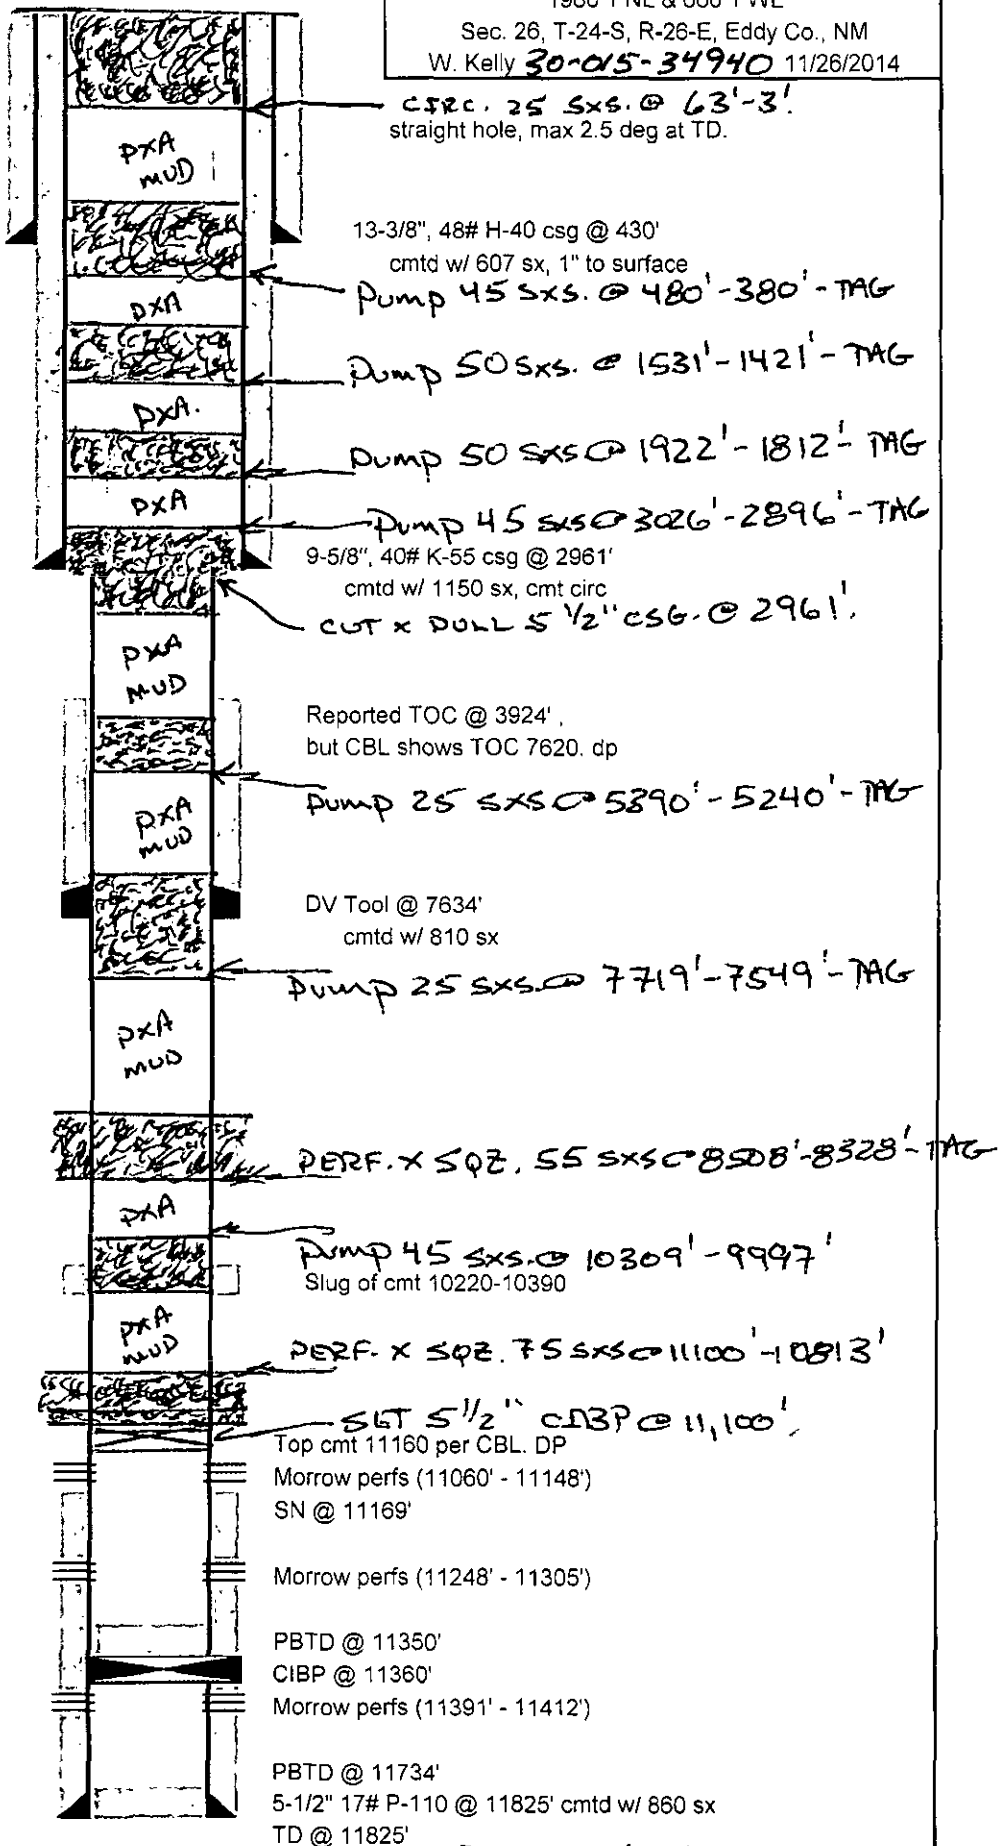 Sec. 26, T-24-S, R-26-E, Eddy Co., NM
W. Kelly 30-015-34940 11/26/2014
CIRC. 25 SXS. @ 63'-3'.
straight hole, max 2.5 deg at TD.
PXA
MUD
13-3/8", 48# H-40 csg @ 430'
cmtd w/ 607 sx, 1" to surface
Pump 45 SXS. @ 480'-380'-TAG
PXA
Pump 50 SXS. @ 1531'-1421'-TAG
PXA.
Pump 50 SXS @ 1922'-1812'-TAG
PXA
Pump 45 SXS @ 3026'-2896'-TAG
9-5/8", 40# K-55 csg @ 2961'
cmtd w/ 1150 sx, cmt circ
CUT X PULL 5 1/2" CSG. @ 2961'.
PXA
MUD
Reported TOC @ 3924',
but CBL shows TOC 7620. dp
Pump 25 SXS @ 5390'-5240'-TAG
PXA
MUD
DV Tool @ 7634'
cmtd w/ 810 sx
Pump 25 SXS. @ 7719'-7549'-TAG
PXA
MUD
PERF. X SQZ. 55 SXS @ 8508'-8328'-TAG
PXA
Pump 45 SXS. @ 10309'-9997'
Slug of cmt 10220-10390
PXA
MUD
PERF. X SQZ. 75 SXS @ 11100'-10813'
SET 5 1/2" CIBP @ 11,100'.
Top cmt 11160 per CBL. DP
Morrow perfs (11060' - 11148')
SN @ 11169'
Morrow perfs (11248' - 11305')
PBTD @ 11350'
CIBP @ 11360'
Morrow perfs (11391' - 11412')
PBTD @ 11734'
5-1/2" 17# P-110 @ 11825' cmtd w/ 860 sx
TD @ 11825'